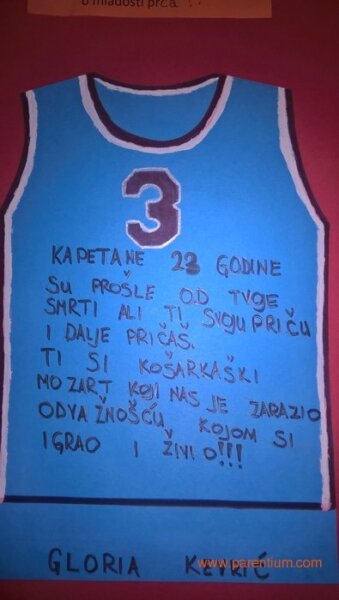 o mladosti priča ...
3
KAPETANE 23 GODINE
SU PROŠLE OD TVOJE
SMRTI ALI TI SVOJU PRIČU
I DALJE PRIČAŠ.
TI SI KOŠARKAŠKI
MOZART KOJI NAS JE ZARAZIO
ODVAŽNOŠĆU KOJOM SI
IGRAO I ŽIVIO!!!
www.parentium.com
GLORIA KEVRIĆ